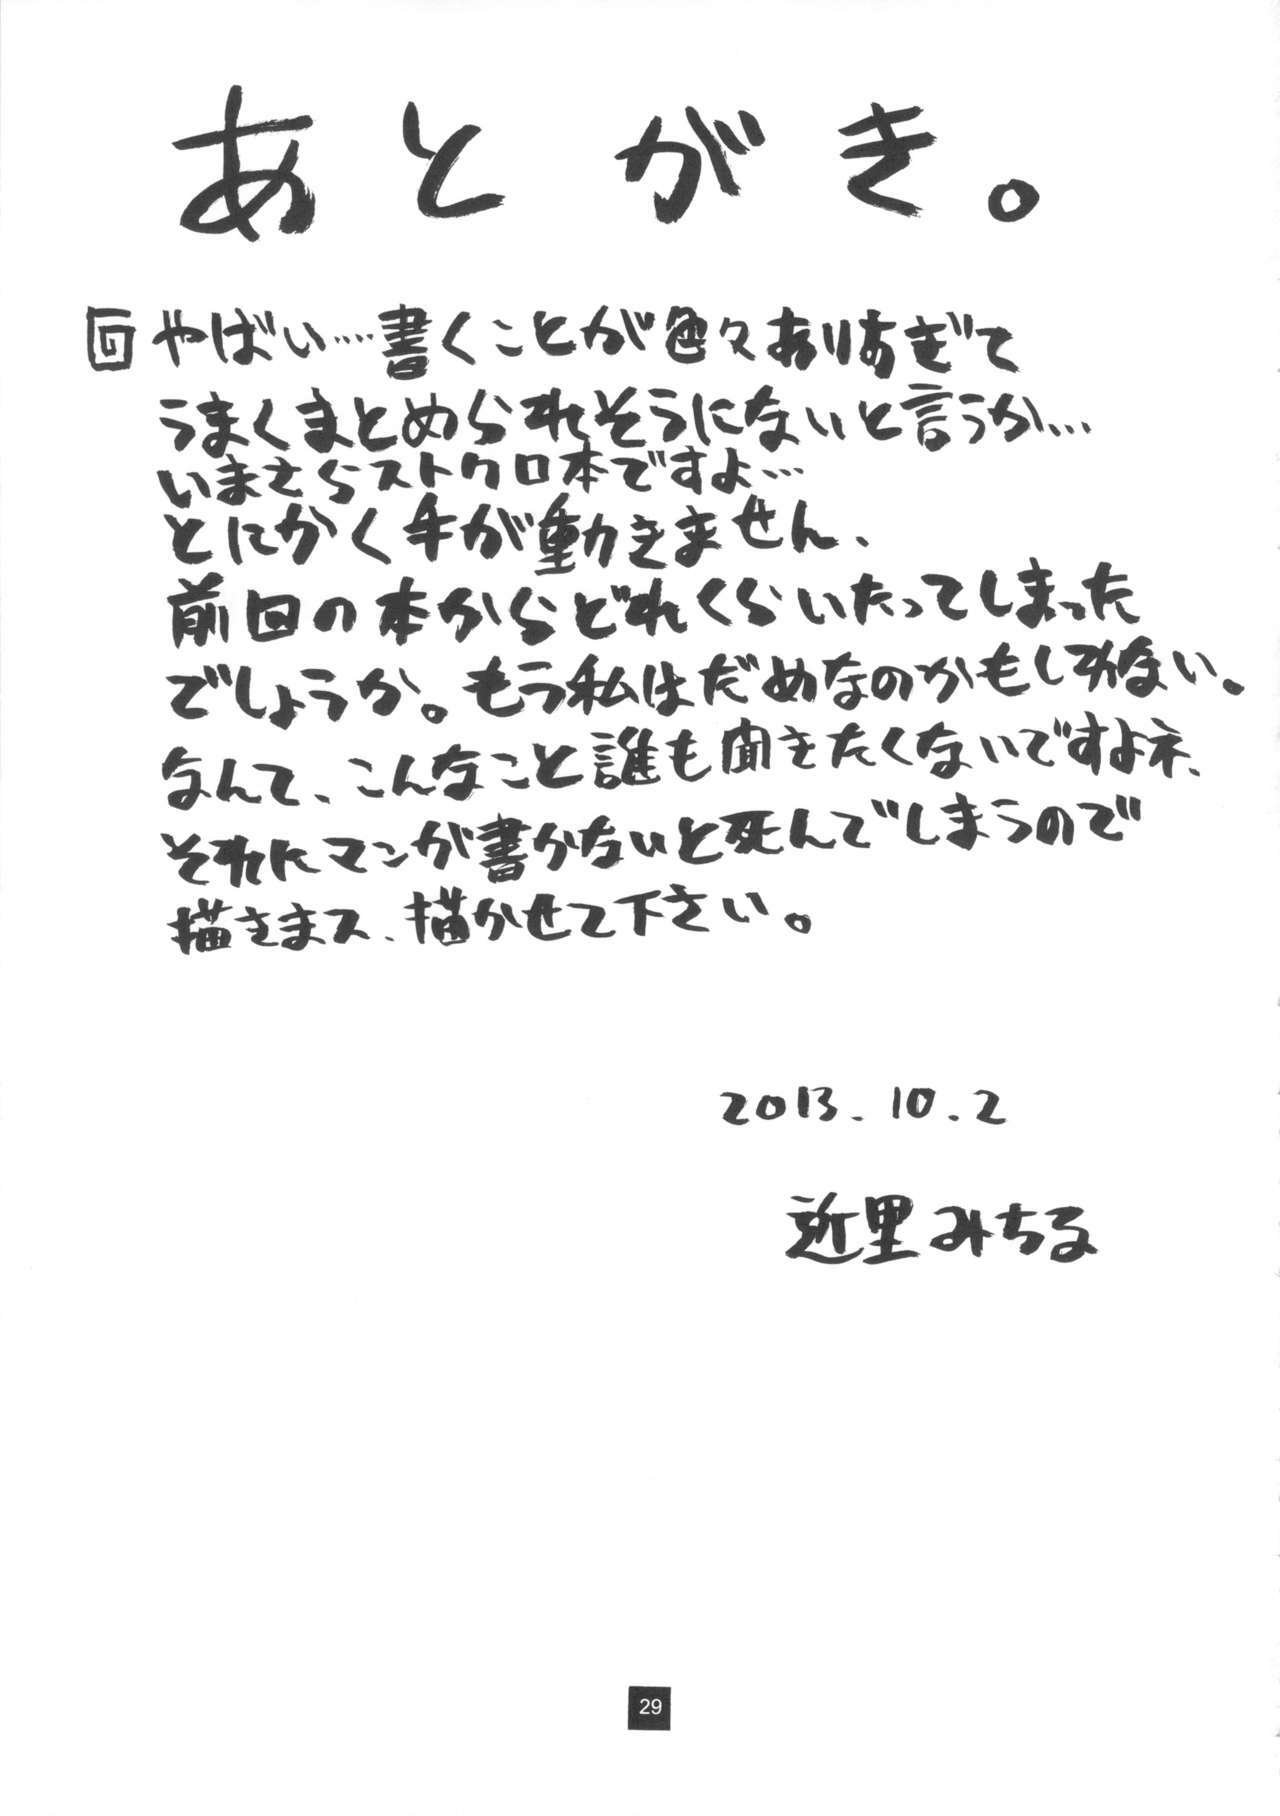 あとがき。
やばい…書くことが色々ありすぎて
うまくまとめられそうにないと言うか…
いまさらストクロ本ですよ…
とにかく手が動きません、
前回の本からどれくらいたってしまった
でしょうか。もう私はだめなのかもしれない。
なんて、こんなこと誰も聞きたくないですよネ、
それにマンガ書かないと死んでしまうので
描きまス、描かせて下さい。
2013.10.2
近里みちる
29